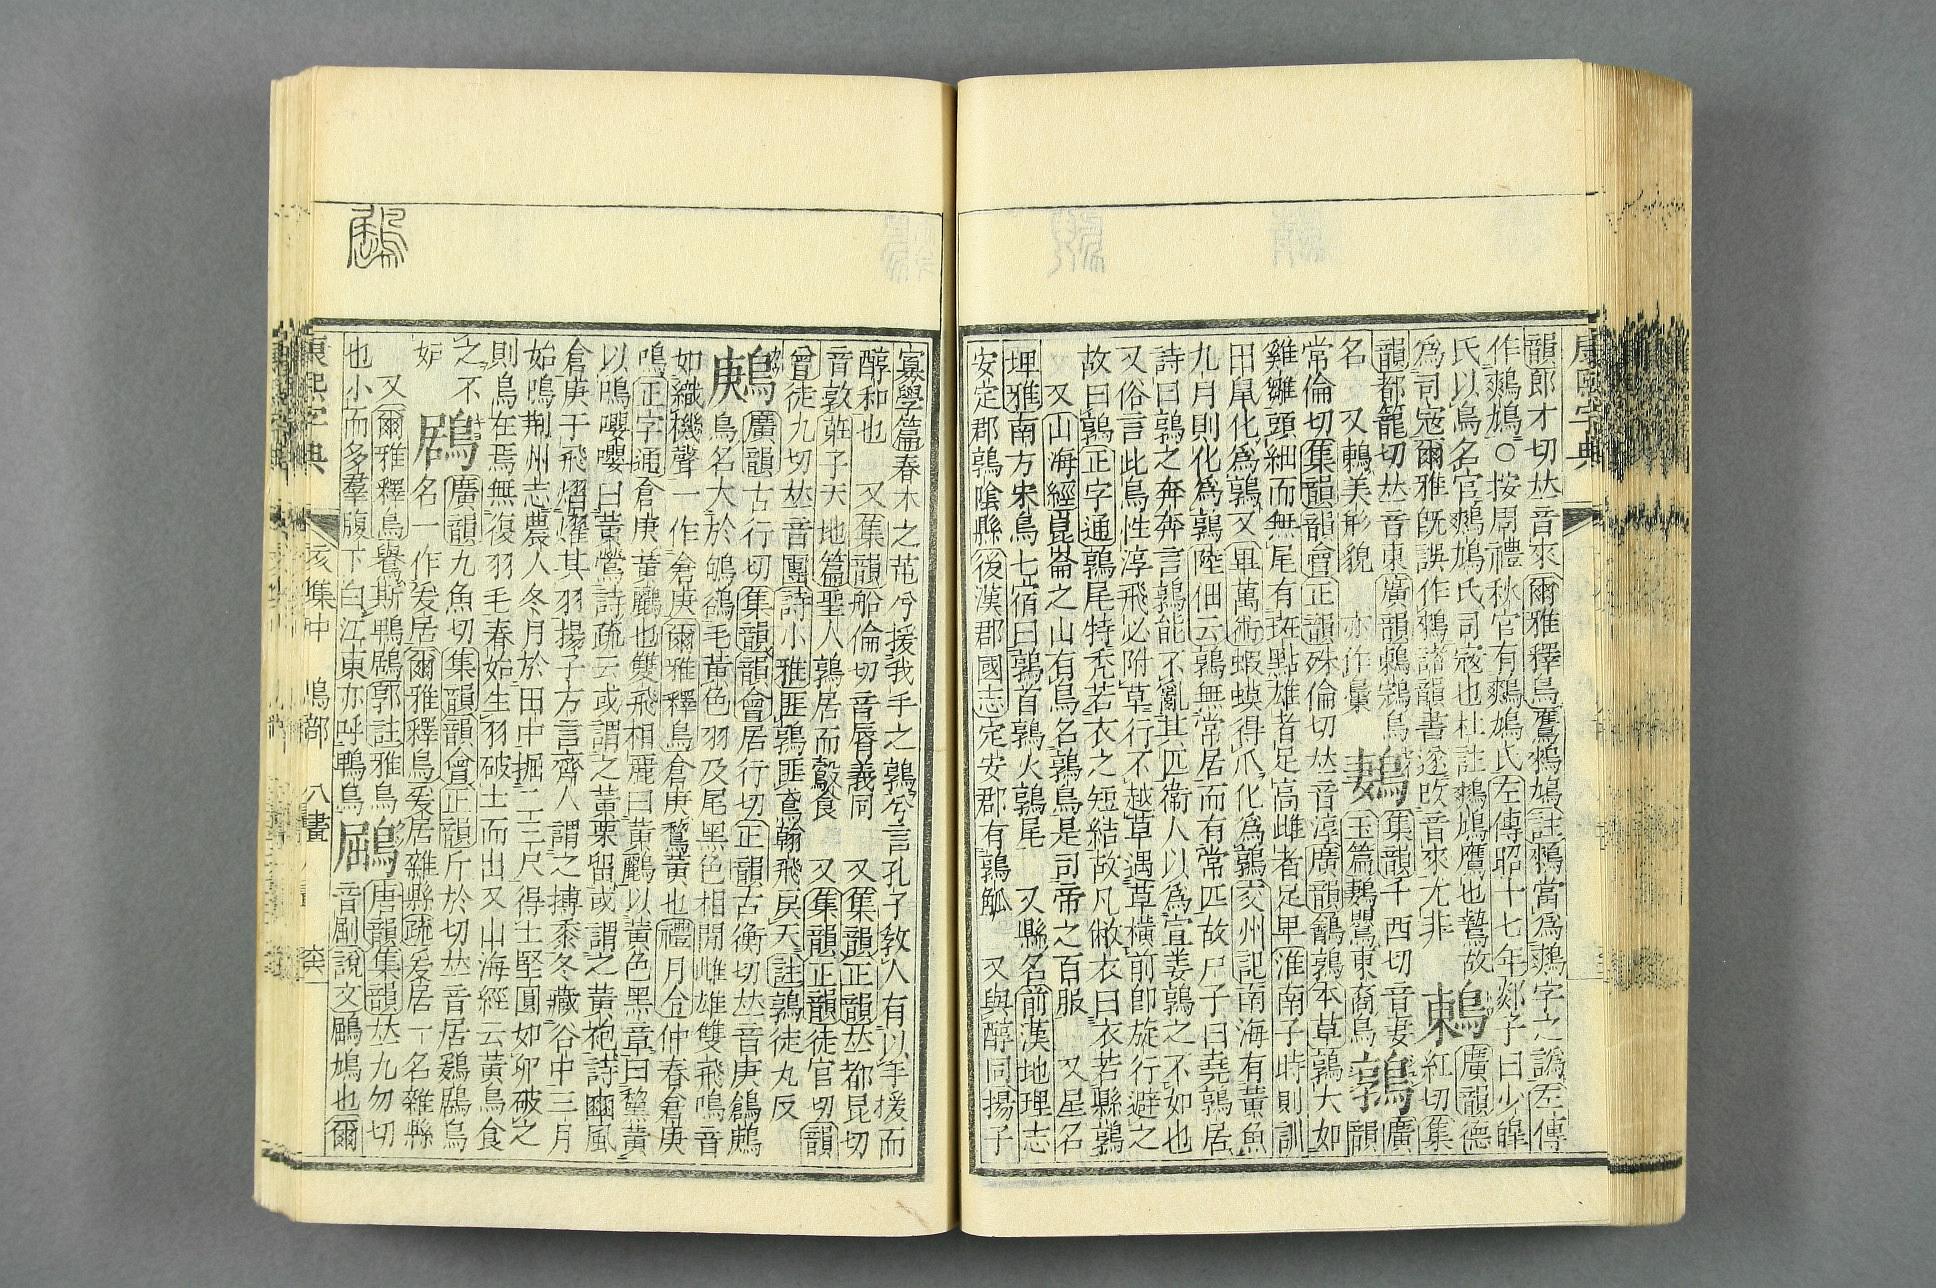 康熙字典
韻郎才切𠀤音來爾雅釋鳥鷹鶆鳩註鶆當爲鷞字之譌左傳
作鷞鳩○按周禮秋官有鷞鳩氏左傳昭十七年郯子曰少皥
氏以鳥名官鷞鳩氏司寇也杜註鷞鳩鷹也鷙故 鶇 廣韻德
爲司寇爾雅旣誤作鶆諸韻書遂改音來尤非 紅切集
韻都籠切𠀤音東廣韻鶇鵍鳥 鶈 集韻千西切音妻 鶉 廣
名 又鶇美形貌 亦作 玉篇鶈䴏東裔鳥 韻
常倫切集韻韻會正韻殊倫切𠀤音淳廣韻鶴鶉本草鶉大如
雞雛頭細而無尾有斑點雄者足高雌者足𤰞淮南子時則訓
田鼠化爲鶉又畢萬術蝦蟆得爪化爲鶉交州記南海有黃魚
九月則化爲鶉陸佃云鶉無常居而有常匹故尸子曰堯鶉居
詩曰鶉之奔奔言鶉能不亂其匹衞人以爲宣姜鶉之不如也
又俗言此鳥性淳飛必附草行不越草遇草橫前卽旋行避之
故曰鶉正字通鶉尾特禿若衣之短結故凡敝衣曰衣若縣鶉
又山海經崑崙之山有鳥名鶉鳥是司帝之百服 又星名
埤雅南方朱鳥七宿曰鶉首鶉火鶉尾 又縣名前漢地理志
安定郡鶉陰縣後漢郡國志定安郡有鶉觚 又與醇同揚子
寡學篇春木之芚兮援我手之鶉兮言孔子敎人有以手援而
醇和也 又集韻船倫切音脣義同 又集韻正韻𠀤都昆切
音敦莊子天地篇聖人鶉居而鷇食 又集韻正韻徒官切韻
會徒丸切𠀤音團詩小雅匪鶉匪鳶翰飛戾天註鶉徒丸反
鶊 廣韻古行切集韻韻會居行切正韻古衡切𠀤音庚鶬鶊
鳥名大於鵓鴿毛黃色羽及尾黑色相閒雌雄雙飛鳴音
如織機聲一作倉庚爾雅釋鳥倉庚鶖黃也禮月令仲春倉庚
鳴正字通倉庚黃鸝也雙飛相麗曰黃鸝以黃色黑章曰鵹黃
以鳴嚶嚶曰黃鶯詩疏云或謂之黃栗留或謂之黃袍詩豳風
倉庚于飛熠燿其羽揚子方言齊人謂之摶黍冬藏谷中三月
始鳴荆州志農人冬月於田中掘二三尺得土堅圓如卵破之
則鳥在焉無復羽毛春始生羽破土而出又山海經云黃鳥食
之不 鶋 廣韻九魚切集韻韻會正韻斤於切𠀤音居鶢鶋鳥
妒 名一作爰居爾雅釋鳥爰居雜縣疏爰居一名雜縣
又爾雅釋鳥鸒斯鵯鶋郭註雅烏 鶌 唐韻集韻𠀤九勿切
也小而多羣腹下白江東亦呼鵯烏 音 說文鶌鳩也爾
鶌
康熙字典 亥集中 鳥部 八畫